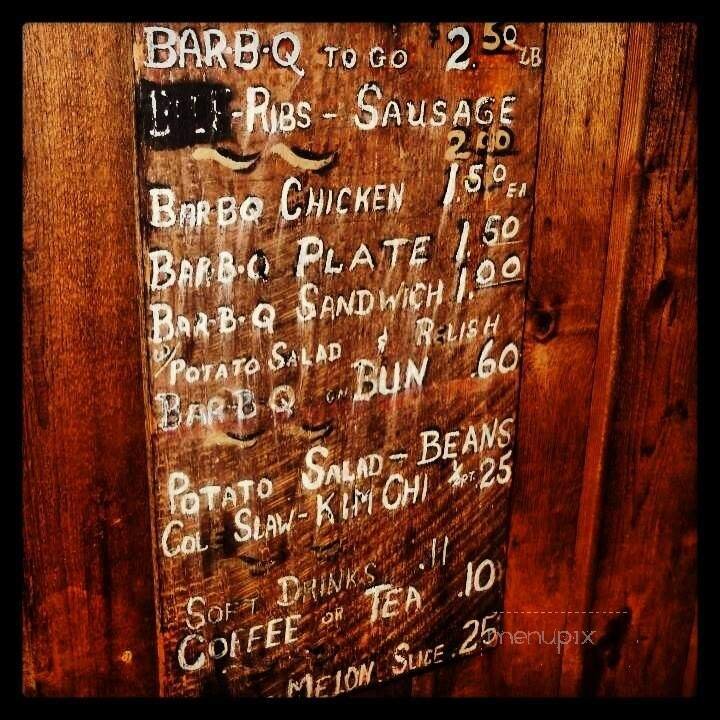 BAR·B·Q TO GO 2.50 LB
-RIBS - SAUSAGE
2.00
BARBQ CHICKEN 1.50 EA
BAR·B·Q PLATE 1.50
BAR-B-Q SANDWICH 1.00
W/POTATO SALAD & RELISH
BAR-B Q ON BUN .60
POTATO SALAD - BEANS
COLE SLAW - KIM CHI ½ PT. .25
SOFT DRINKS .11
COFFEE OR TEA .10
MELON SLICE .25
menupix